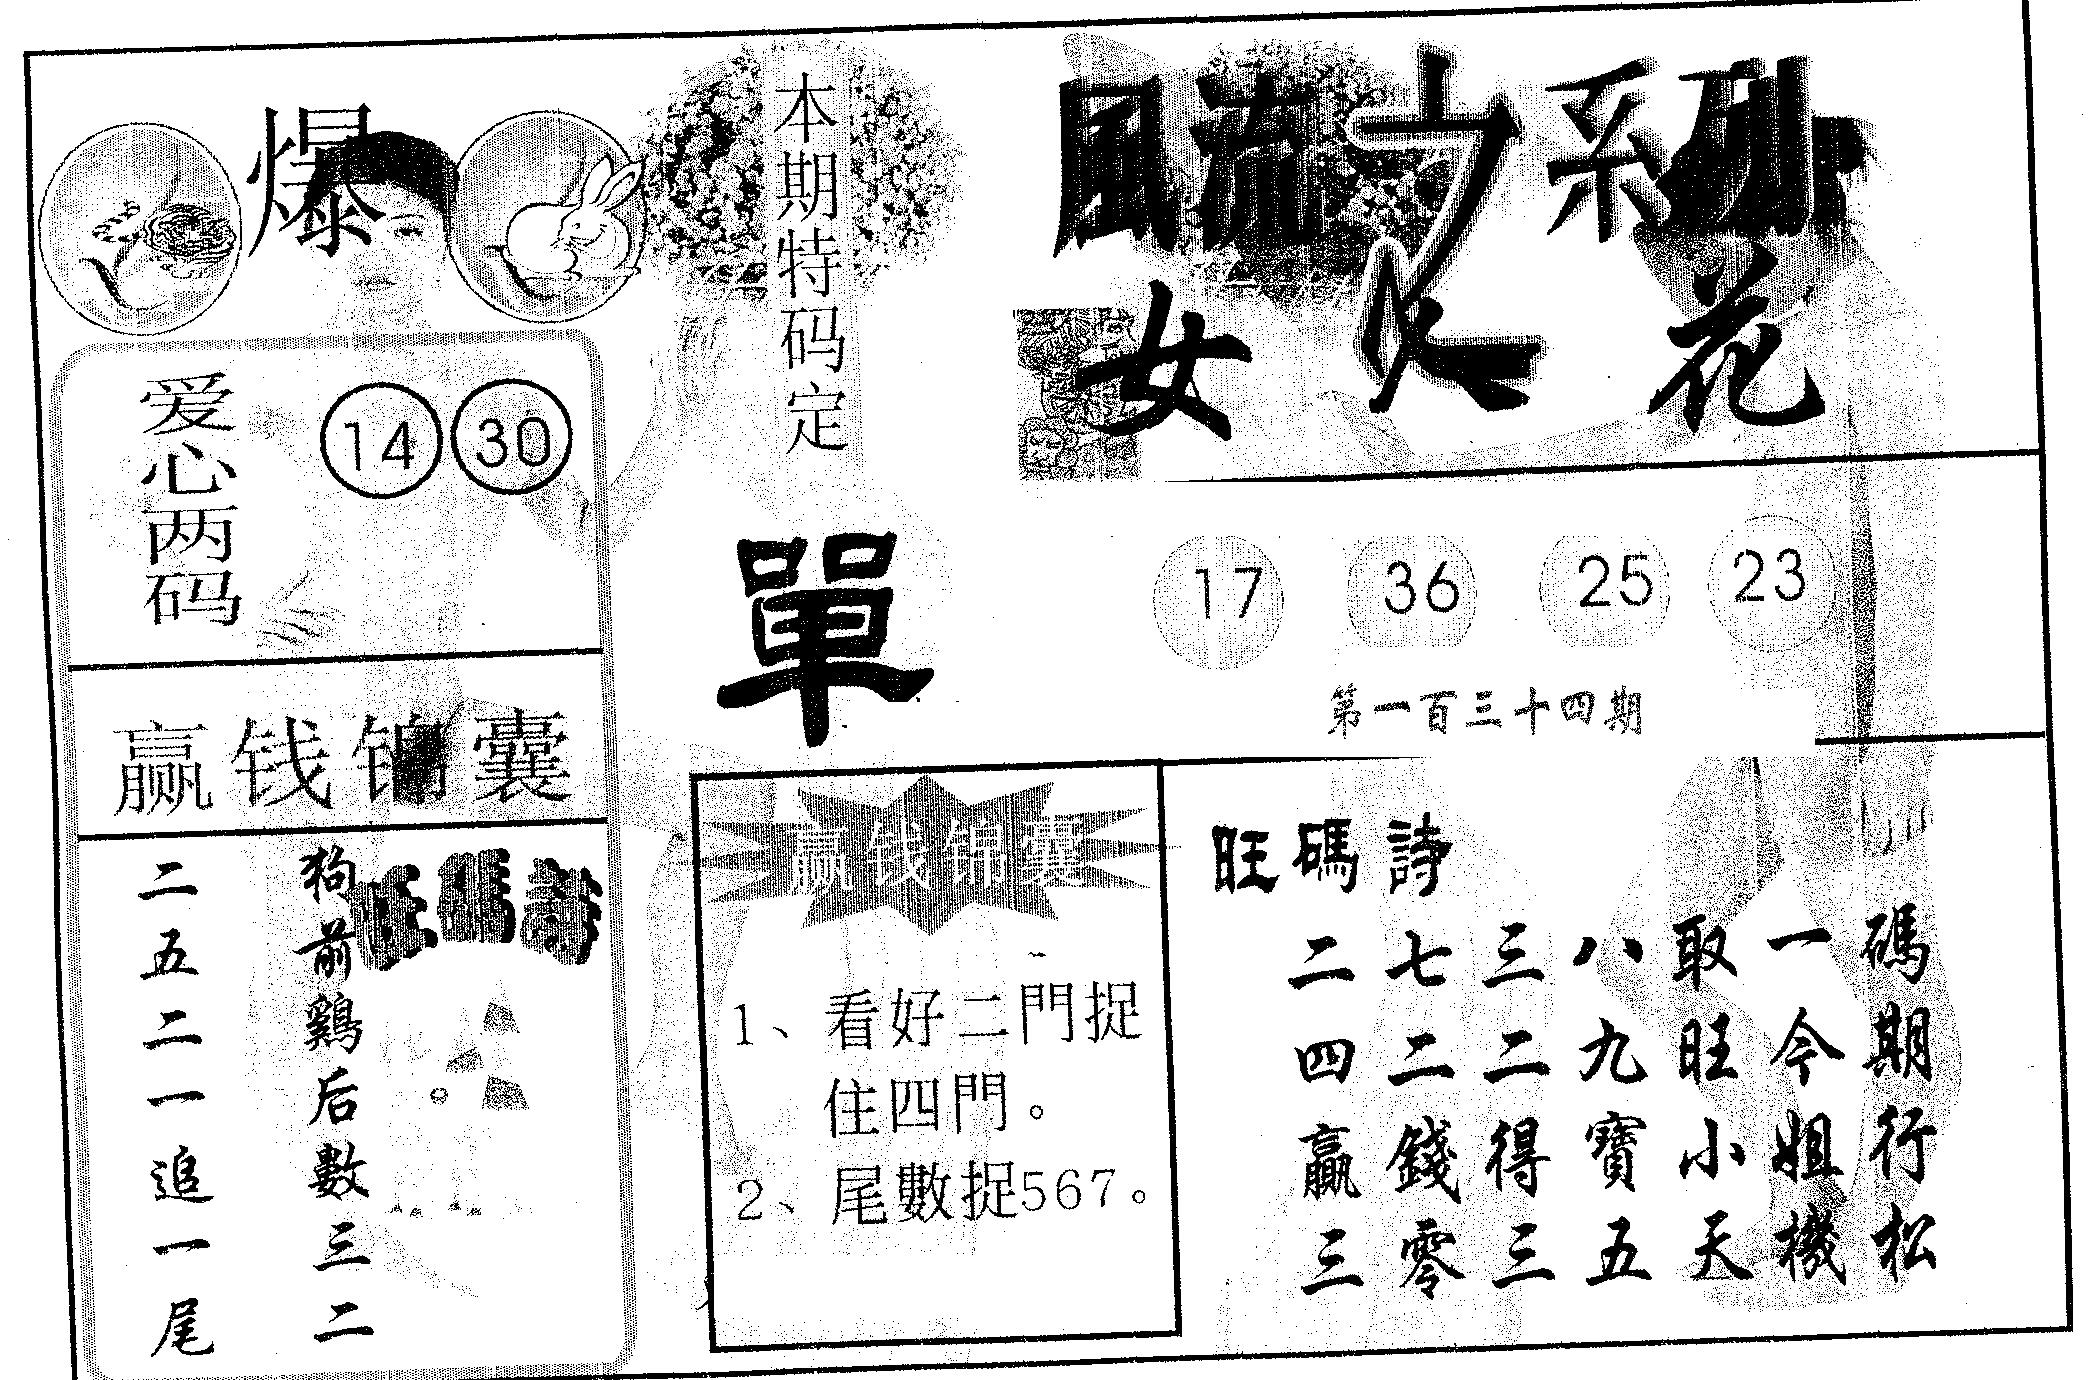 爆
本期特码定
單
風流女系列
女人花
爱心两码
14 30
17 36 25 23
第一百三十四期
赢钱锦囊
旺碼詩
狗前鷄后數三二
二五二一追一尾
赢钱锦囊
1、看好二門捉
住四門。
2、尾數捉567。
旺碼詩
二七三八取一碼
四二二九旺今期
贏錢得寶小姐行
三零三五天機松